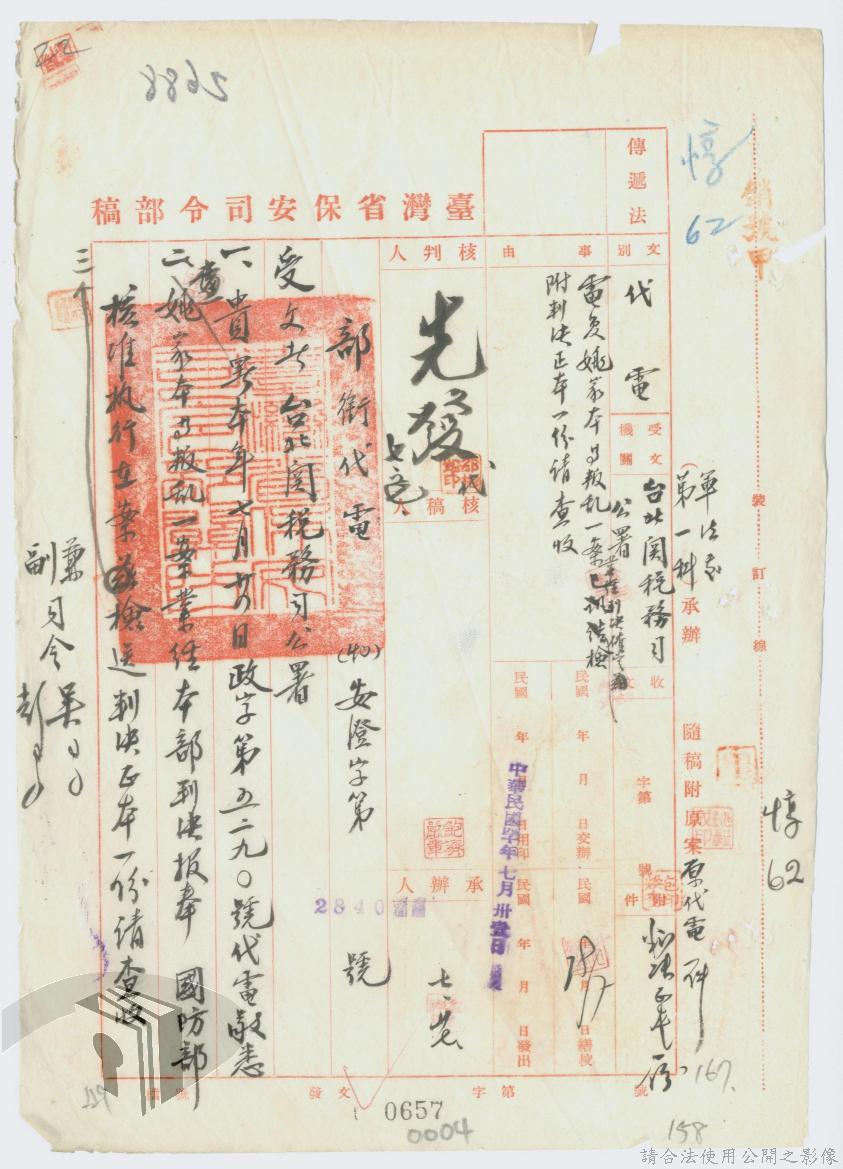 銷號
惇
62
裝訂線
惇
62
軍法處
第一科承辦
隨稿附原案原代電一件
167.
158
傳遞法
文別
代電
受文機關
台北關稅務司公署
收文
字第
號
附件
判決正本一份
事由
電復姚家本為叛乱一案
附判決正本一份請查收
民國 年 月 日交辦
民國 年 月 日繕校
民國 年 月 日用印
民國 年 月 日發出
中華民國 年七月卅壹日
臺灣省保安司令部稿
核判人
先發
代
核稿人
承辦人
部銜代電
(40)安澄字第
2840
號
受文者 台北關稅務司公署
一、貴署本年七月 日政字第五二九〇號代電敬悉
二、查姚家本為叛乱一案業經本部判決報奉 國防部
核准执行在案茲檢送判決正本一份請查收
三、
兼司令吳
副司令彭
檔號
發文
字第
號
0657
0004
8865
請合法使用公開之影像